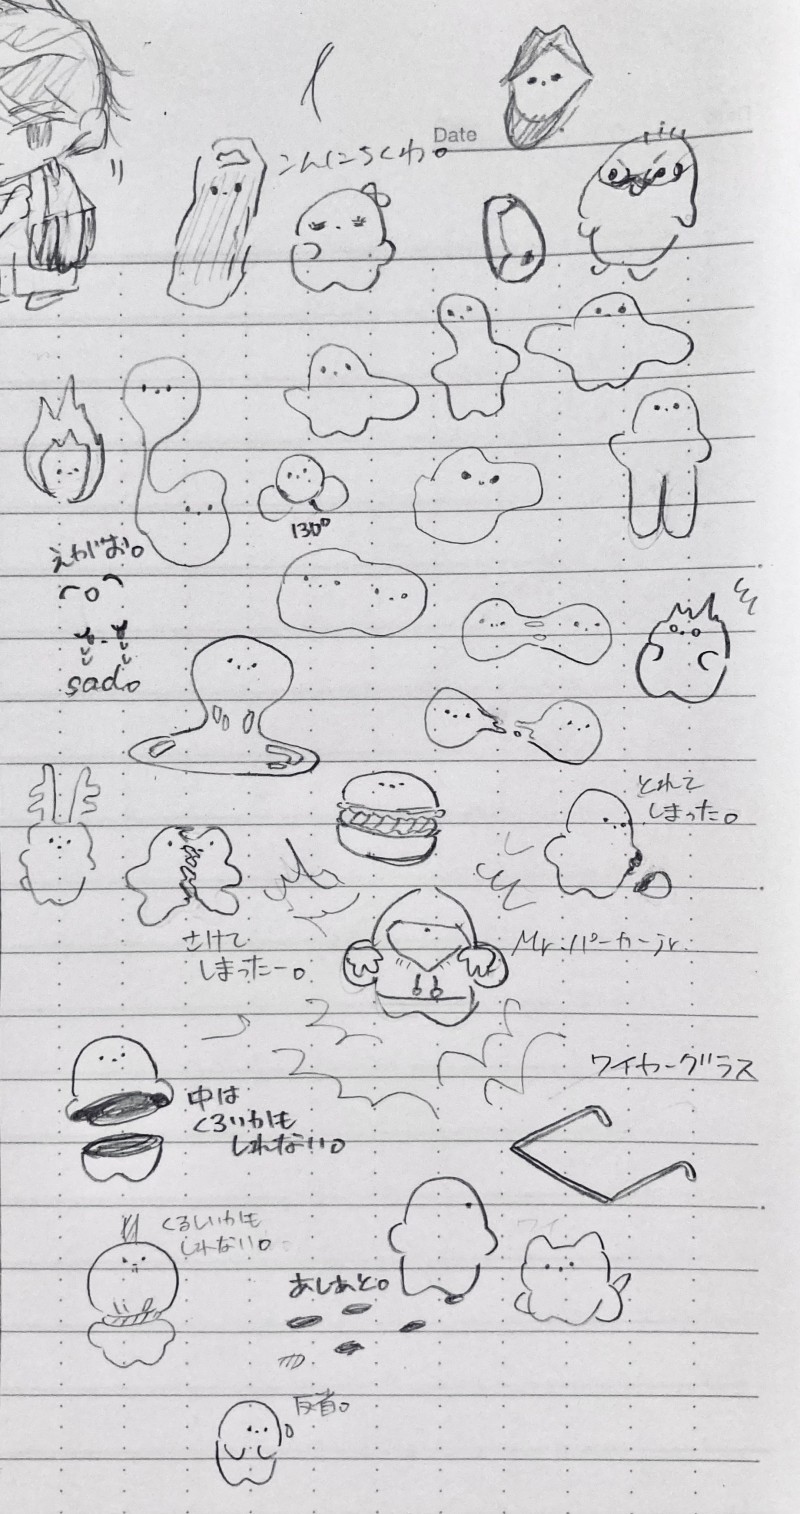 Date
こんにちくわ。
130°
えがお。
sad。
とれて
しまった。
さけて
しまったー。
Mr.パーカーJr.
ワイヤーグラス
中は
くろいかも
しれない。
くるしいかも
しれない。
あしあと。
反省。